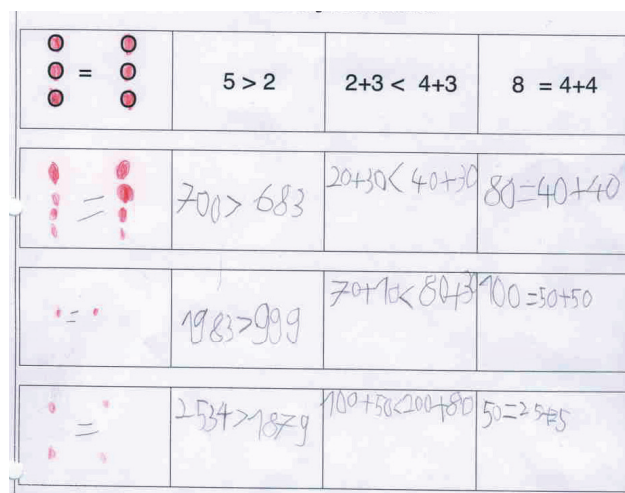 = 5 > 2 2+3 < 4+3 8 = 4+4
= 700 > 683 20+30 < 40+30 80=40+40
= 1983 > 999 70+10 < 80+30 100=50+50
= 2534 > 1879 100+50<200+80 50=25+25